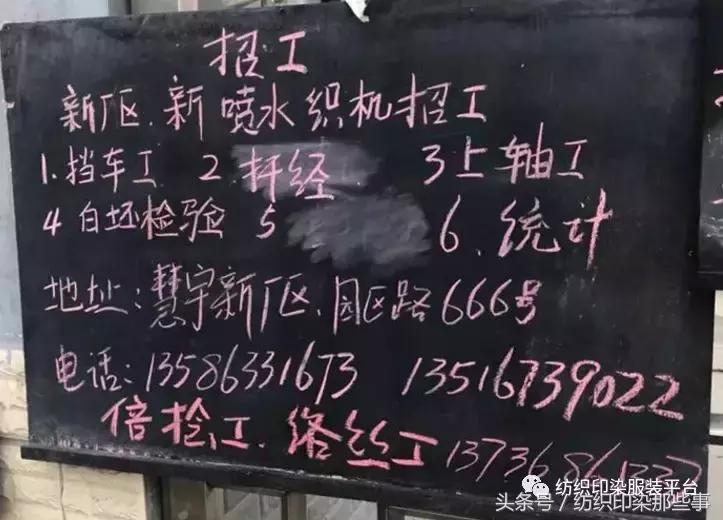 招工
新厂区.新喷水织机招工
1.挡车工 2.扦经 3上轴工
4白坯检验 5 6.统计
地址:慧宇新厂区.园区路666号
电话:13586331673 13516739022
倍捡工.络丝工
纺织印染服装平台
头条号/纺织印染那些事